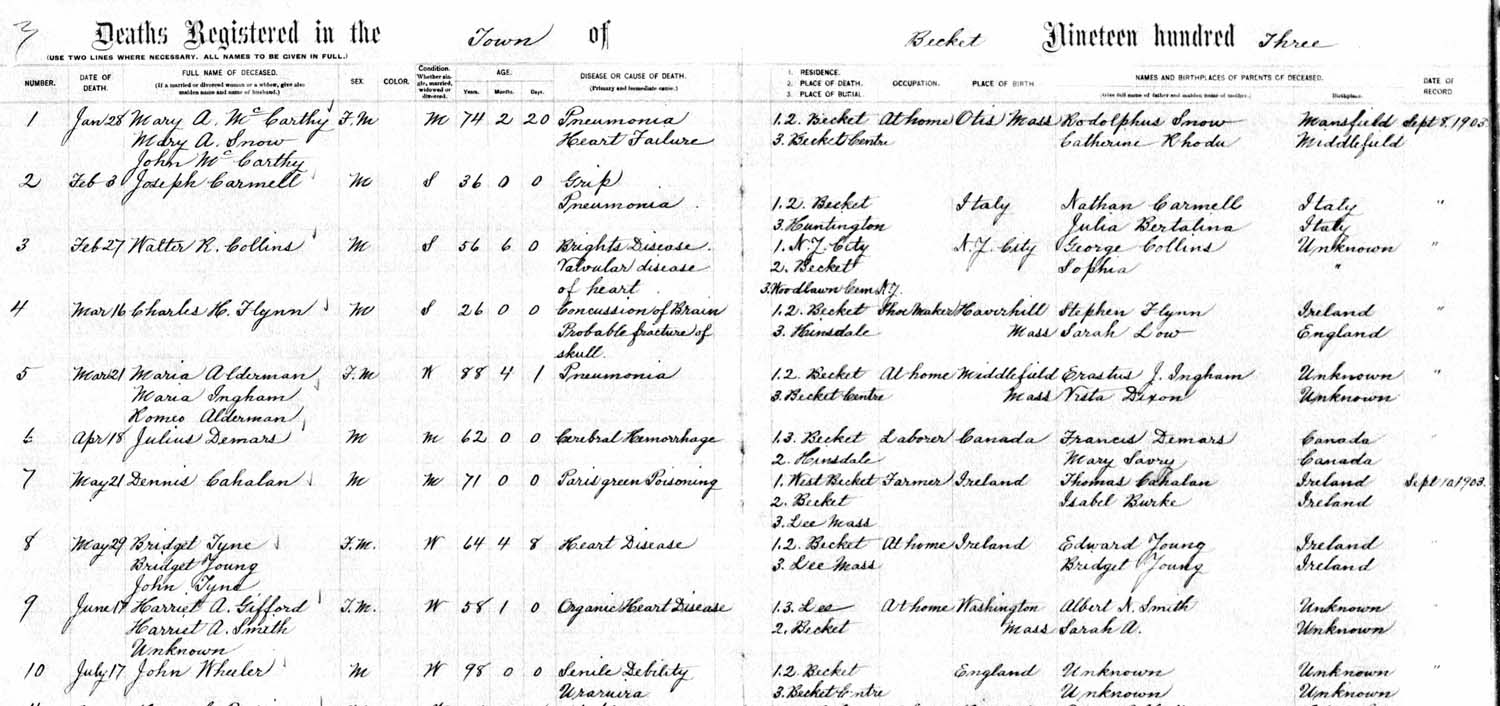 3
Deaths Registered in the Town of Becket Nineteen hundred Three
(USE TWO LINES WHERE NECESSARY. ALL NAMES TO BE GIVEN IN FULL.)
NUMBER. DATE OF DEATH. FULL NAME OF DECEASED. (If a married or divorced woman or a widow, give also maiden name and name of husband.) SEX. COLOR. Condition. Whether single, married, widowed or divorced. AGE. Years. Months. Days. DISEASE OR CAUSE OF DEATH. (Primary and immediate cause.) 1. RESIDENCE. 2. PLACE OF DEATH. 3. PLACE OF BURIAL. OCCUPATION. PLACE OF BIRTH. NAMES AND BIRTHPLACES OF PARENTS OF DECEASED. (Give full name of father and maiden name of mother.) Birthplace. DATE OF RECORD
1 Jan 28 Mary A. McCarthy F.M M 74 2 20 Pneumonia 1.2. Becket At home Otis Mass Rodolphus Snow Mansfield Sept 8, 1903
Mary A. Snow Heart Failure 3. Becket Centre Catherine Rhodu Middlefield
John McCarthy
2 Feb 3 Joseph Carmell M S 36 0 0 Grip
Pneumonia 1.2. Becket Italy Nathan Carmell Italy "
3. Huntington Julia Bertalina Italy
3 Feb 27 Walter R. Collins M S 56 6 0 Brights Disease. 1. N.Y. City N.Y. City George Collins Unknown "
Valvular disease 2. Becket Sophia "
of heart 3. Woodlawn Cem N.Y.
4 Mar 16 Charles H. Flynn M S 26 0 0 Concussion of Brain 1.2. Becket Shoe Maker Haverhill Stephen Flynn Ireland "
Probable fracture of 3. Hinsdale Mass Sarah Low England
skull.
5 Mar 21 Maria Alderman F.M W 88 4 1 Pneumonia 1.2. Becket At home Middlefield Erastus J. Ingham Unknown "
Maria Ingham 3. Becket Centre Mass Vista Dixon Unknown
Romeo Alderman
6 Apr 18 Julius Demars M M 62 0 0 Cerebral Hemorrhage 1.3. Becket Laborer Canada Francis Demars Canada "
2. Hinsdale Mary Savry Canada
7 May 21 Dennis Cahalan M M 71 0 0 Paris green Poisoning 1. West Becket Farmer Ireland Thomas Cahalan Ireland Sept 10, 1903.
2. Becket Isabel Burke Ireland
3. Lee Mass
8 May 29 Bridget Tyne F.M. W 64 4 8 Heart Disease 1.2. Becket At home Ireland Edward Young Ireland "
Bridget Young 3. Lee Mass Bridget Young Ireland
John Tyne
9 June 17 Harriet A. Gifford F.M. W 58 1 0 Organic Heart Disease 1.3. Lee At home Washington Albert N. Smith Unknown "
Harriet A. Smith 2. Becket Mass Sarah A. Unknown
Unknown
10 July 17 John Wheeler M W 98 0 0 Senile Debility 1.2. Becket England Unknown Unknown "
3. Becket Centre Unknown Unknown